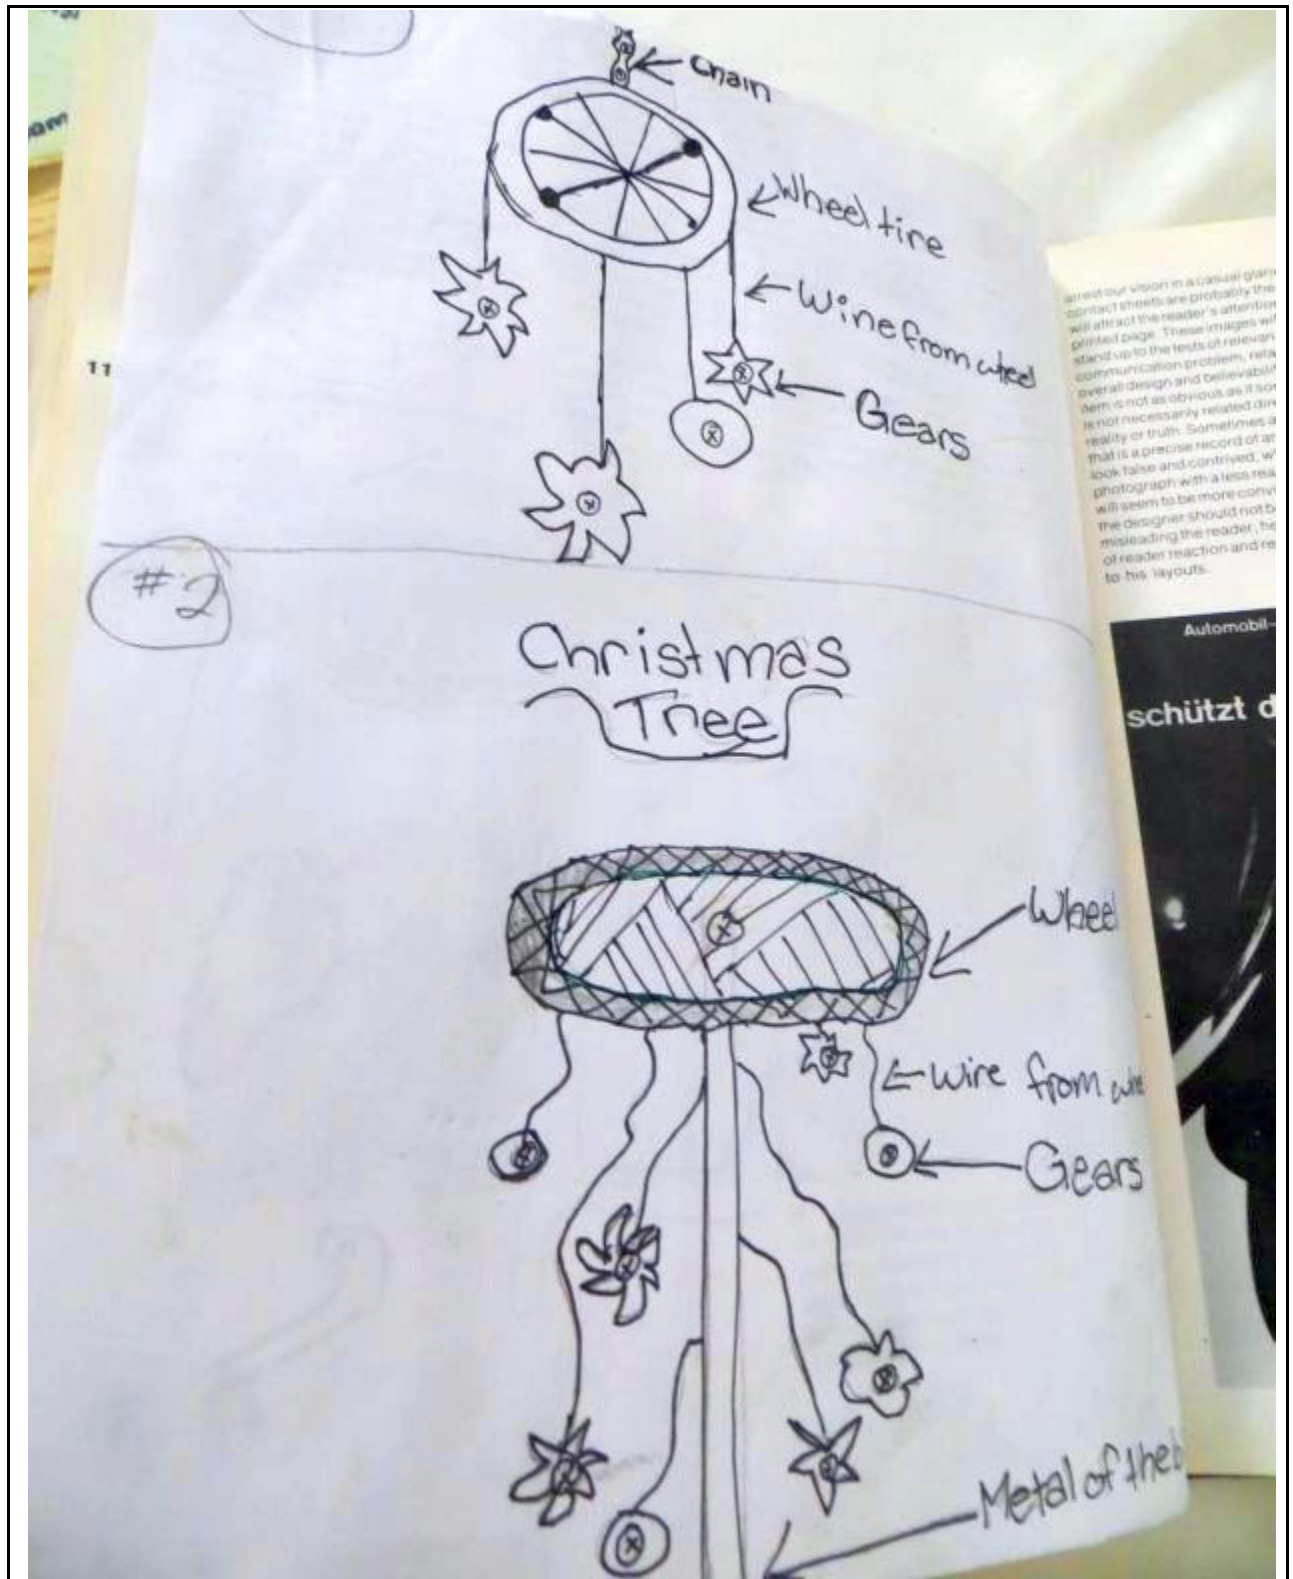 chain
Wheel tire
Wine from wheel
Gears
11
#2
Christmas
Tree
Wheel
wire from
Gears
Metal of the
arrest our vision in a casual
contact sheets are probably the
will attract the reader's
printed page. These images
stand up to the tests of
communication problem,
overall design and
item is not as obvious as if
is not necessarily related
reality or truth. Sometimes a
that is a precise record of
look false and contrived,
photograph with a less
will seem to be more
the designer should not
misleading the reader,
of reader reaction and
to his layouts.
Automobil-
schützt d